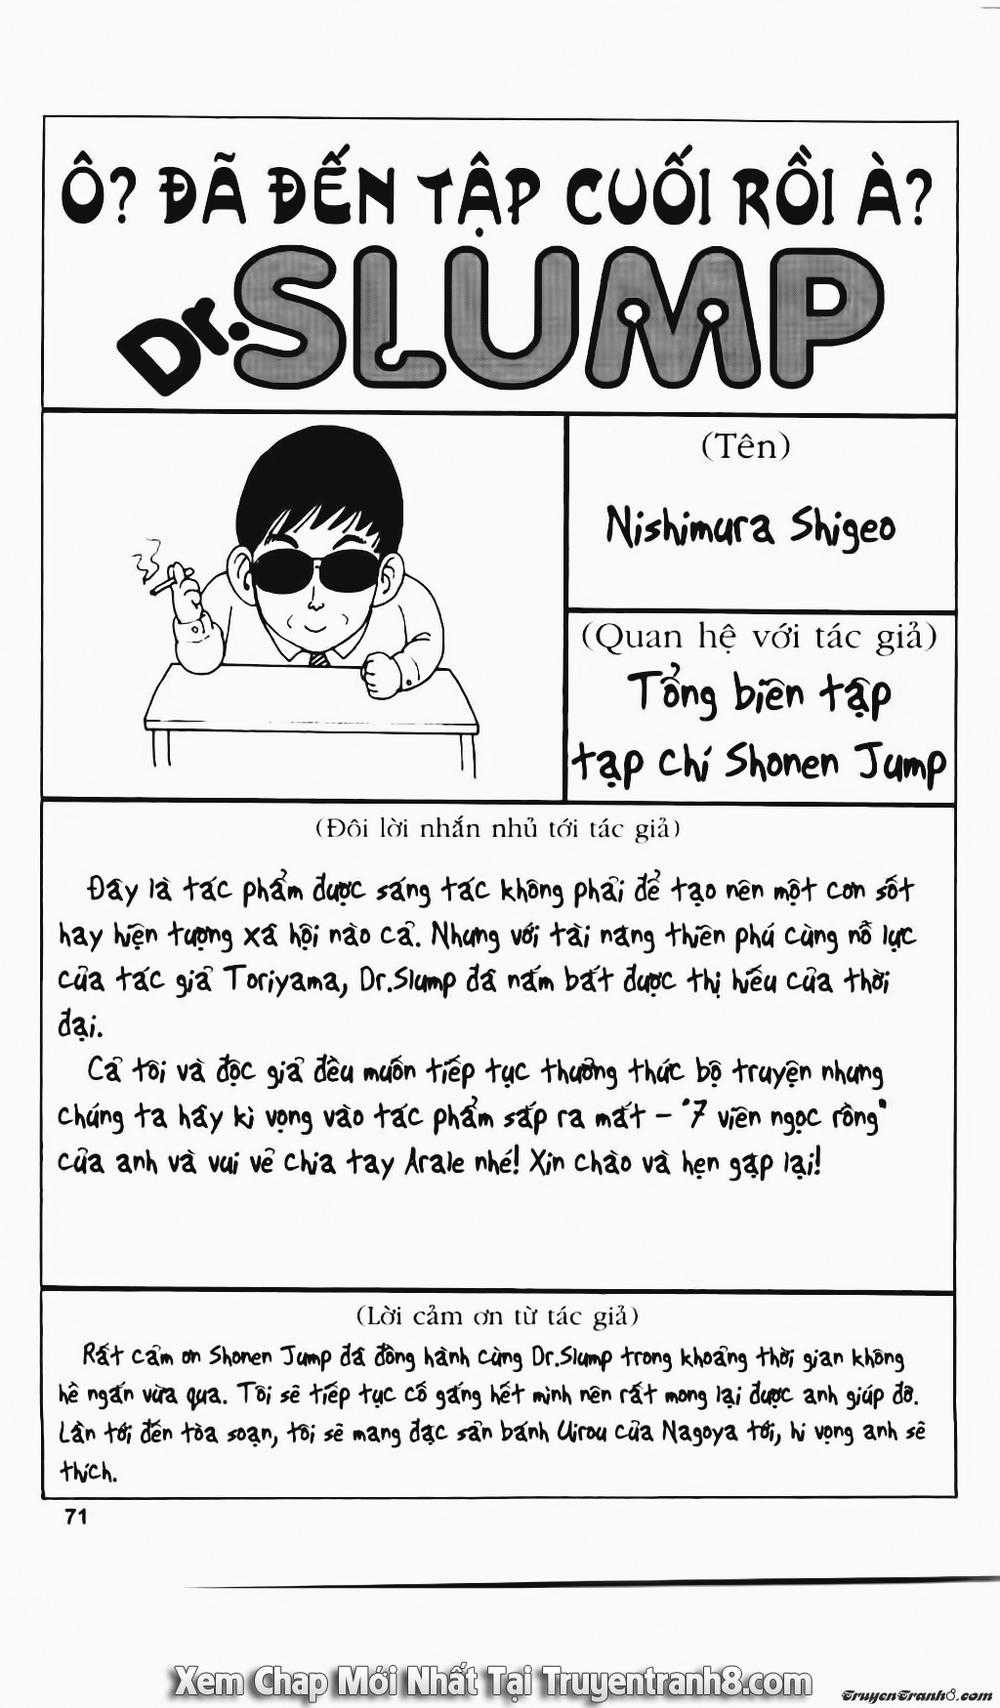 Ô? ĐÃ ĐẾN TẬP CUỐI RỒI À?
Dr. SLUMP
(Tên)
Nishimura Shigeo
(Quan hệ với tác giả)
Tổng biên tập
tạp chí Shonen Jump
(Đôi lời nhắn nhủ tới tác giả)
Đây là tác phẩm được sáng tác không phải để tạo nên một cơn sốt
hay hiện tượng xã hội nào cả. Nhưng với tài năng thiên phú cùng nỗ lực
của tác giả Toriyama, Dr.Slump đã nắm bắt được thị hiếu của thời
đại.
Cả tôi và độc giả đều muốn tiếp tục thưởng thức bộ truyện nhưng
chúng ta hãy kì vọng vào tác phẩm sắp ra mắt - "7 viên ngọc rồng"
của anh và vui vẻ chia tay Arale nhé! Xin chào và hẹn gặp lại!
(Lời cảm ơn từ tác giả)
Rất cảm ơn Shonen Jump đã đồng hành cùng Dr.Slump trong khoảng thời gian không
hề ngắn vừa qua. Tôi sẽ tiếp tục cố gắng hết mình nên rất mong lại được anh giúp đỡ.
Lần tới đến tòa soạn, tôi sẽ mang đặc sản bánh Uirou của Nagoya tới, hi vọng anh sẽ
thích.
71
Xem Chap Mới Nhất Tại Truyentranh8.com
TruyenTranh8.com